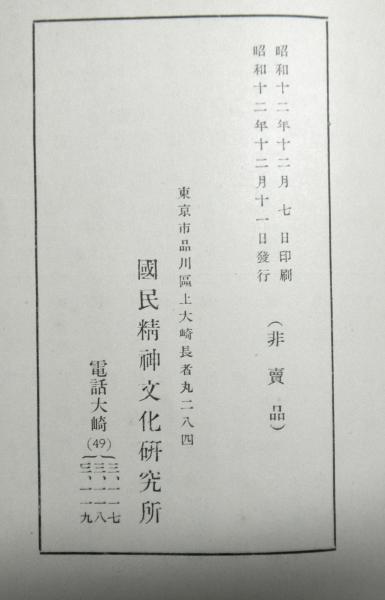 昭和十二年十二月七日印刷
昭和十二年十二月十一日發行
(非賣品)
東京市品川區上大崎長者丸二八四
國民精神文化研究所
電話大崎(49)